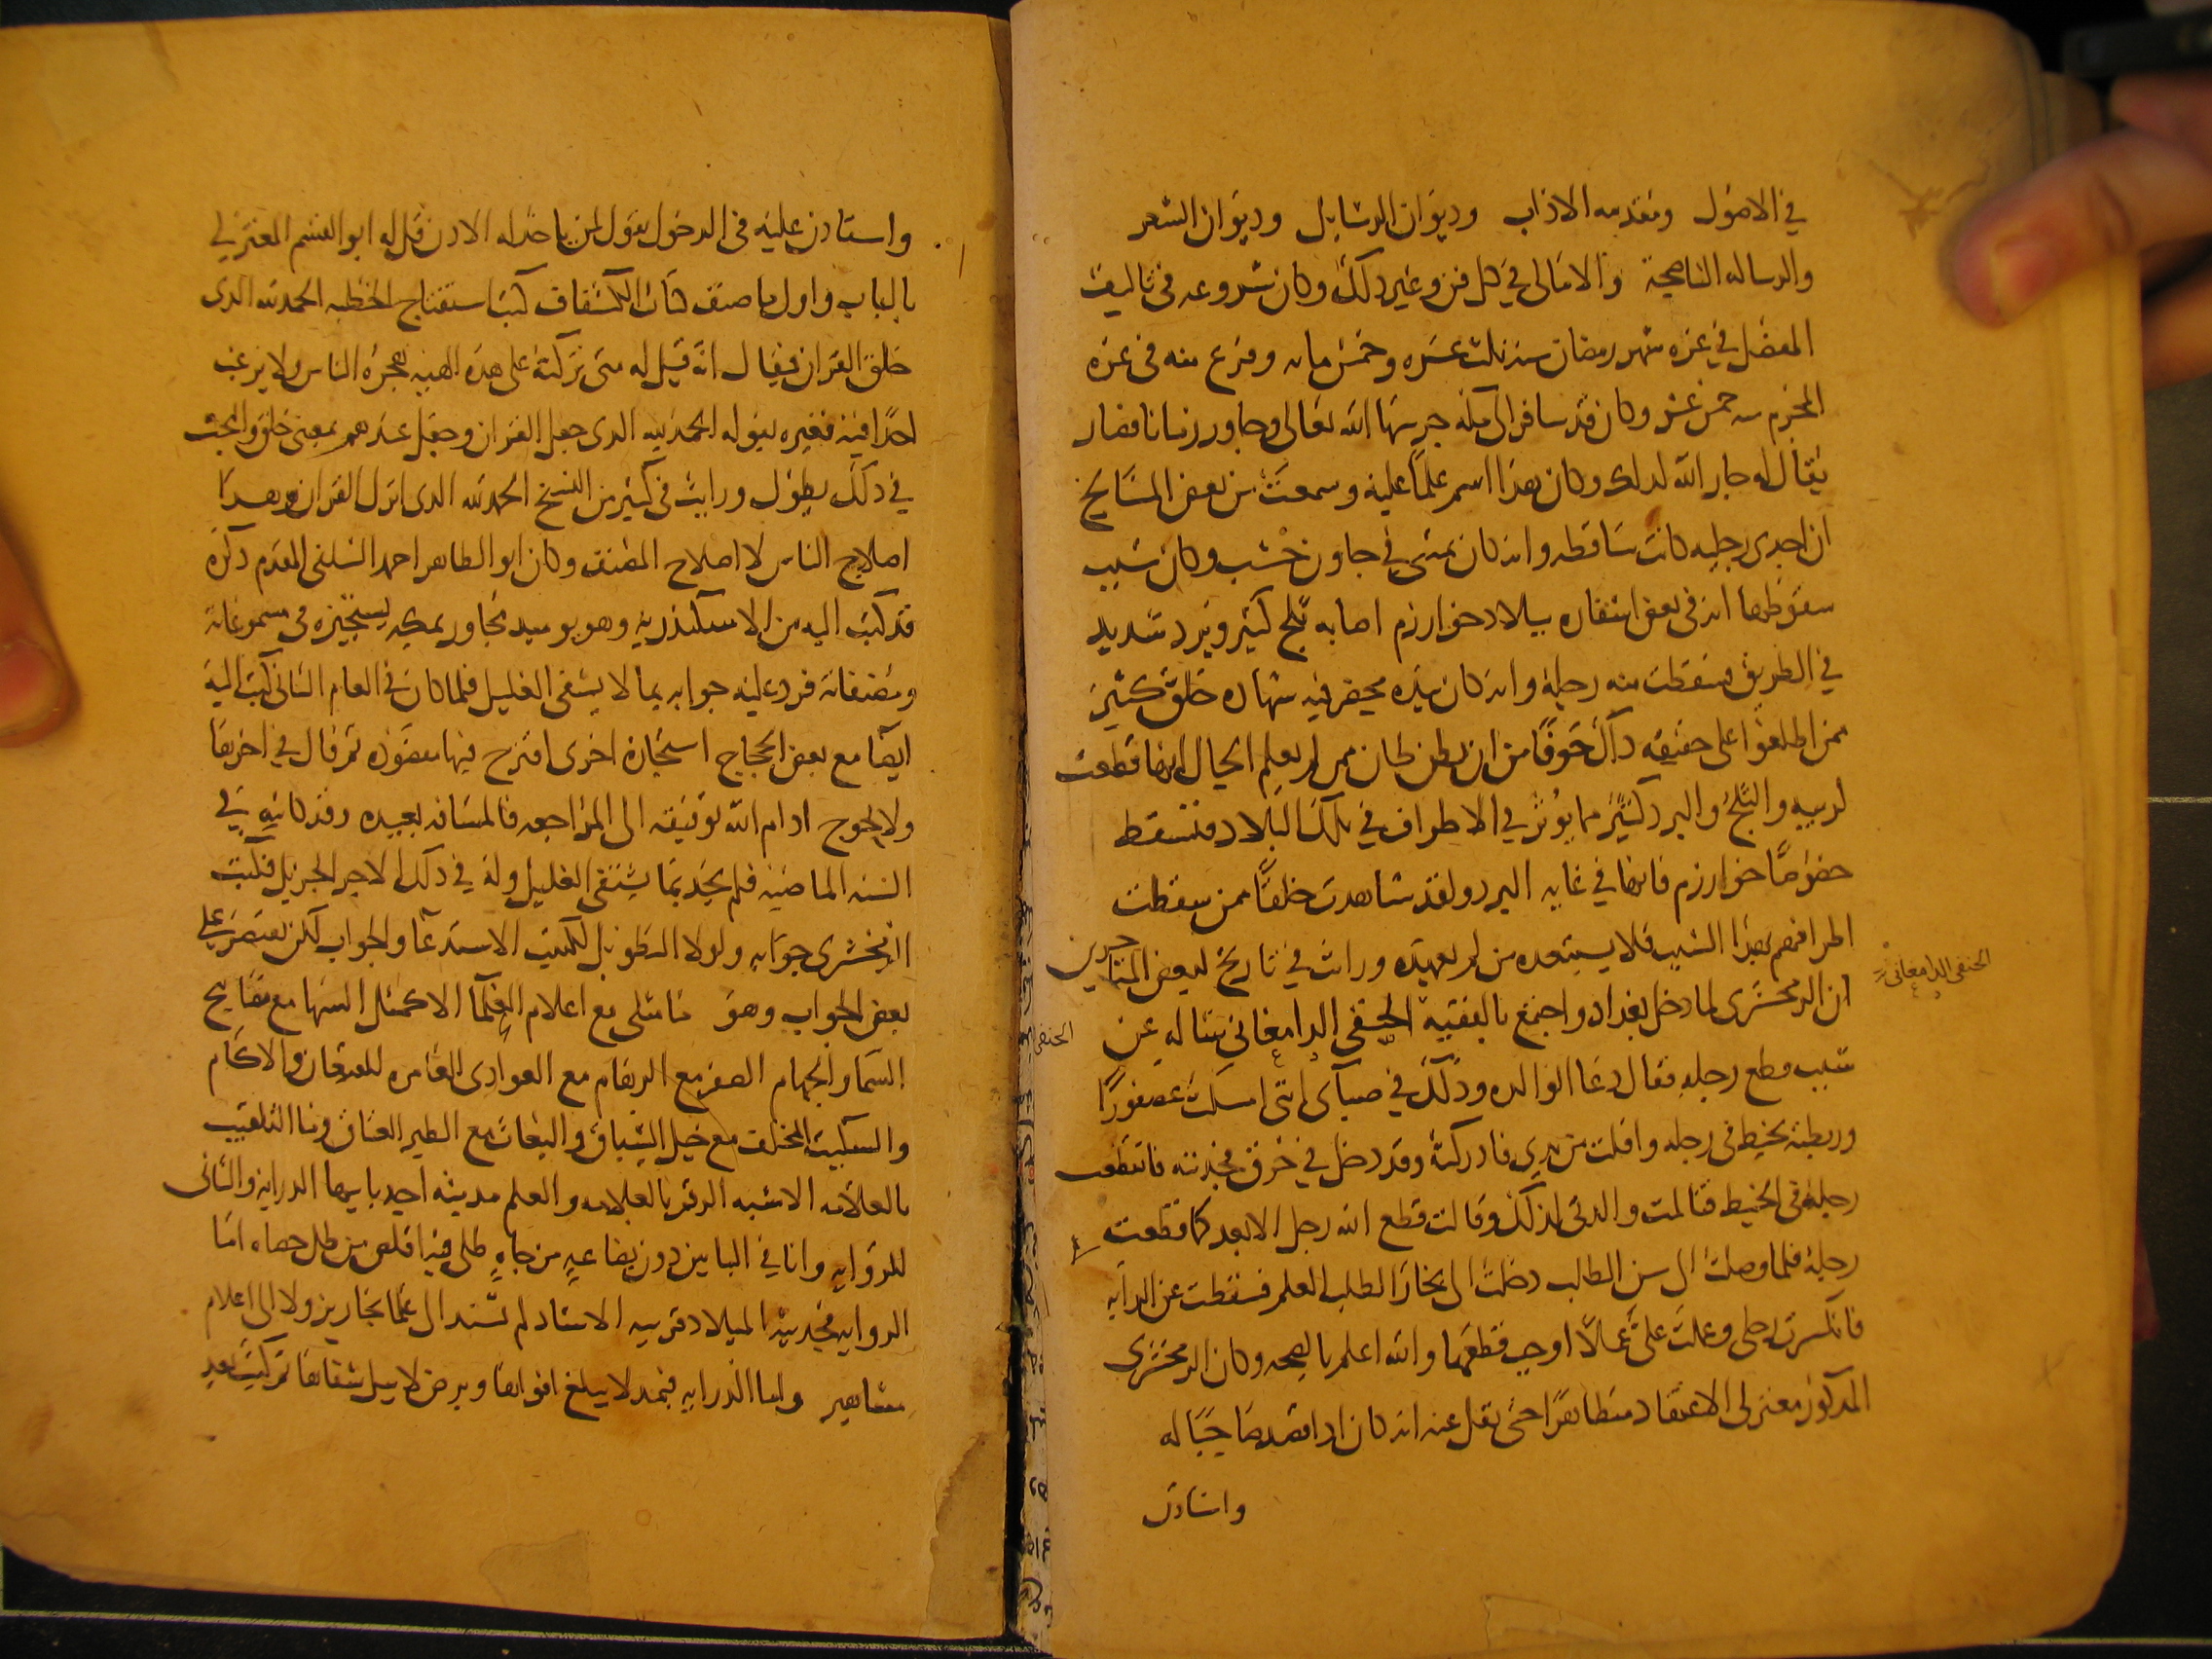 في الاصول ومقدمه الاداب وديوان الرسايل وديوان الشعر
والرساله الناصحة والامالى في كل فن وغير ذلك وكان شروعه فى تاليف
المفصل في غره شهر رمضان سنه ثلث عشره وخمس مايه وفرغ منه فى غره
المحرم سنه خمس عشره وكان قد سافر الى مكه حرسها الله تعالى وجاور زمانا فصار
يقال له جار الله لذلك وكان هذا اسم علما عليه وسمعت من بعض المشايخ
ان احدى رجليه كانت ساقطه وانه كان يمشى في جاون خشب وكان سبب
سقوطها انه فى بعض اسفاره ببلاد خوارزم اصابه ثلج كثير وبرد شديد
في الطريق فسقطت منه رجله وانه كان بيده محضر فيه شهاده خلق كثير
ممن اطلعوا على حقيقه ذلك خوفا من ان يظن ظان ممن لم يعلم الحال انها قطعت
لريبه والثلج والبرد كثيرا ما يؤثر في الاطراف في تلك البلاد فتسقط
خصوصا خوارزم فانها في غايه البرد ولقد شاهدت خلقا ممن سقطت
اطرافهم بهذا السبب فلا يستبعده من لم يعهده ورايت في تاريخ لبعض المتاخرين
ان الزمخشرى لما دخل بغداد واجتمع بالفقيه الحنفى الدامغاني سأله عن
الحنفى الدامغانى
الحنفى
سبب قطع رجله فقال دعا الوالده وذلك في صباى انني امسكت عصفورا
وربطته بخيط فى رجله وافلت من يدى فادركته وقد دخل في خرق فجذبته فانقطعت
رجله فى الخيط فتالمت والدتى لذلك وقالت قطع الله رجل الابعد كما قطعت
رجله فلما وصلت الى سن الطلب رحلت الى بخارا لطلب العلم فسقطت عن الدابه
فانكسرت رجلى وعملت على عملا اوجب قطعها والله اعلم بالصحه وكان الزمخشرى
المذكور معتزلى الاعتقاد متظاهرا حتى نقل عنه انه كان اذا قصد صاحبا له
واستاذن
واستاذن عليه فى الدخول يقول لمن ياخذ له الاذن قل له ابو القسم المعتزلي
بالباب واول ما صنف كتاب الكشاف كتب استفتاح الخطبه الحمد لله الذى
خلق القران فيقال انه قيل له متى تركته على هذه الهيه هجره الناس ولا يرغب
احد فيه فغيره بقوله الحمد لله الذى جعل القران وجعل عندهم بمعنى خلق والبحث
في ذلك يطول ورايت فى كثير من النسخ الحمد لله الذى انزل القران وهذا
اصلاح الناس لا اصلاح المصنف وكان ابو الطاهر احمد السلفى المقدم ذكره
قد كتب اليه من الاسكندريه وهو يوميذ مجاور بمكه يستجيزه فى مسموعاته
ومصنفاته فرد عليه جوابه بما لا يشفى الغليل فلما كان في العام الثانى كتب اليه
ايضا مع بعض الحجاج استجازة اخرى اقترح فيها مقصوده ثم قال في اخرها
ولا يحوج ادام الله توفيقه الى المراجعه فالمسافه بعيده وقد كاتبه في
السنه الماضيه فلم يجد بما يشفى الغليل وله في ذلك الاجر الجزيل فكتب
الزمخشرى جوابه ولولا التطويل لكتبت الاستدعا والجواب لكن نقتصر على
بعض الجواب وهو ما مثلى مع اعلام العلما الا كمثل السها مع مصابيح
السما والجهام الصفر مع الرهام مع الغوادى الغامره للقيعان والاكام
والسكيت المخلف مع خيل السباق والبغاث مع الطير العتاق وما التلقيب
بالعلامه الا شبه الرقم بالعلامه والعلم مدينه احد بابيها الدرايه والثانى
الروايه وانا في البابين ذو بضاعه مزجاه ظلى فيه اقلص من ظل حصاه اما
الروايه فحديثه الميلاد قريبه الاسناد لم تستند الى علما نحارير ولا الى اعلام
مشاهير واما الدرايه فثمد لا يبلغ افواها وبرض لا يبل شفاها ثم كتب بعد